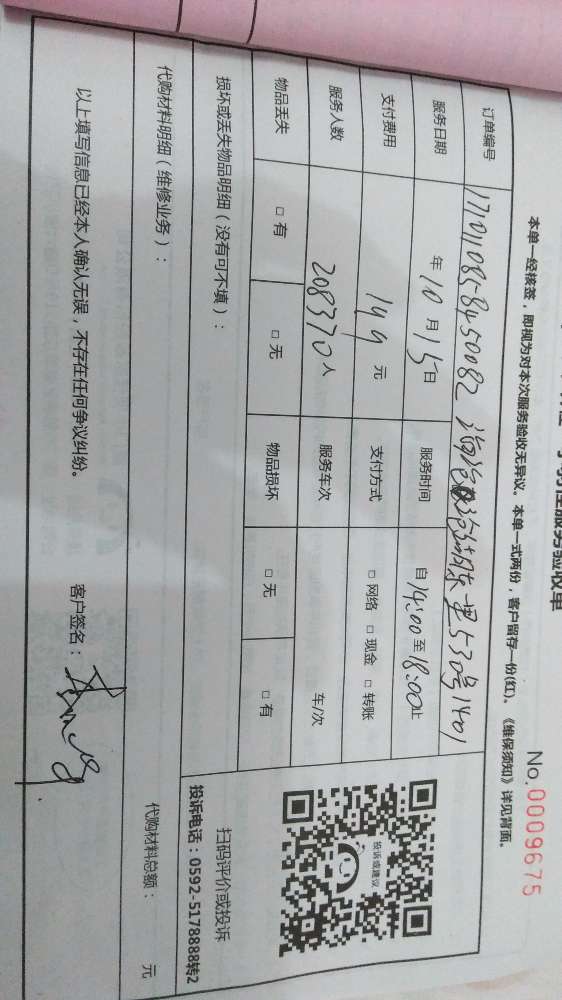 性服务验收单
No.0009675
本单一经核签，即视为对本次服务验收无异议。本单一式两份，客户留存一份(红)。《维保须知》详见背面。
订单编号 17101108584450082 530号1401
服务日期 年10月15日 服务时间 自14:00至18:00止
支付费用 149元 支付方式 □ 网络 □ 现金 □ 转账
服务人数 208370人 服务车次 车/次
物品丢失 □ 有 □ 无 物品损坏 □ 无 □ 有
投诉或建议
扫码评价或投诉
投诉电话：0592-5178888转2
损坏或丢失物品明细（没有可不填）：
代购材料明细（维修业务）： 代购材料总额： 元
以上填写信息已经本人确认无误，不存在任何争议纠纷。 客户签名：